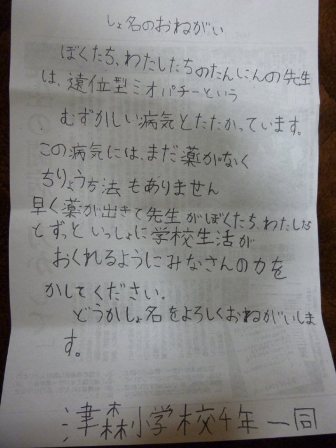 しょ名のおねがい
ぼくたち、わたしたちのたんにんの先生
は、遠位型ミオパチーという
むずかしい病気とたたかっています。
この病気には、まだ薬がなく
ちりょう方法もありません
早く薬が出きて先生がぼくたち、わたしたち
とずっといっしょに学校生活が
おくれるようにみなさんの力を
かしてください。
どうかしょ名をよろしくおねがいしま
す。
津森小学校4年一同